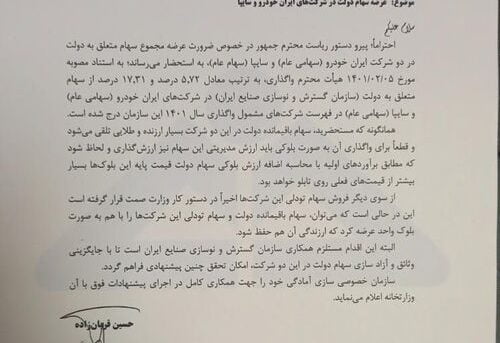 موضوع: عرضه سهام دولت در شرکت‌های ایران خودرو و سایپا
سلام علیکم
احتراماً؛ پیرو دستور ریاست محترم جمهور در خصوص ضرورت عرضه مجموع سهام متعلق به دولت
در دو شرکت ایران خودرو (سهامی عام) و سایپا (سهام عام)، به استحضار می‌رساند؛ به استناد مصوبه
مورخ ۱۴۰۱/۰۲/۰۵ هیأت محترم واگذاری، به ترتیب معادل ۵,۷۲ درصد و ۱۷,۳۱ درصد از سهام
متعلق به دولت (سازمان گسترش و نوسازی صنایع ایران) در شرکت‌های ایران خودرو (سهامی عام)
و سایپا (سهامی عام)، در فهرست شرکت‌های مشمول واگذاری سال ۱۴۰۱ این سازمان درج شده است.
همانگونه که مستحضرید، سهام باقیمانده دولت در این دو شرکت بسیار ارزنده و طلایی تلقی می‌شود
و قطعاً برای واگذاری آن به صورت بلوکی باید ارزش مدیریتی این سهام نیز ارزش‌گذاری و لحاظ شود
که مطابق برآوردهای اولیه با محاسبه اضافه ارزش بلوکی سهام دولت قیمت پایه این بلوک‌ها بسیار
بیشتر از قیمت‌های فعلی روی تابلو خواهد بود.
از سوی دیگر فروش سهام تودلی این شرکت‌ها اخیراً در دستور کار وزارت صمت قرار گرفته است
این در حالی است که می‌توان، سهام باقیمانده دولت و سهام تودلی این شرکت‌ها را با هم به صورت
بلوک واحد عرضه کرد که ارزندگی آن هم حفظ شود.
البته این اقدام مستلزم همکاری سازمان گسترش و نوسازی صنایع ایران است تا با جایگزینی
وثائق و آزاد سازی سهام دولت در این دو شرکت، امکان تحقق چنین پیشنهادی فراهم گردد.
سازمان خصوصی سازی آمادگی خود را جهت همکاری کامل در اجرای پیشنهادات فوق با آن
وزارتخانه اعلام می‌نماید.
حسین قربان‌زاده